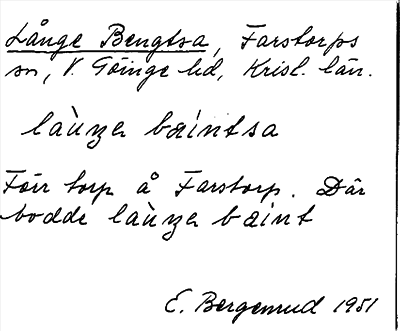 Långe Bengtsa, Farstorps
sn, V. Göinge hd, Krist. län.
làuŋa bæintsa
Förr torp å Farstorp. Där
bodde làuŋa bæint
E. Bergenrud 1951